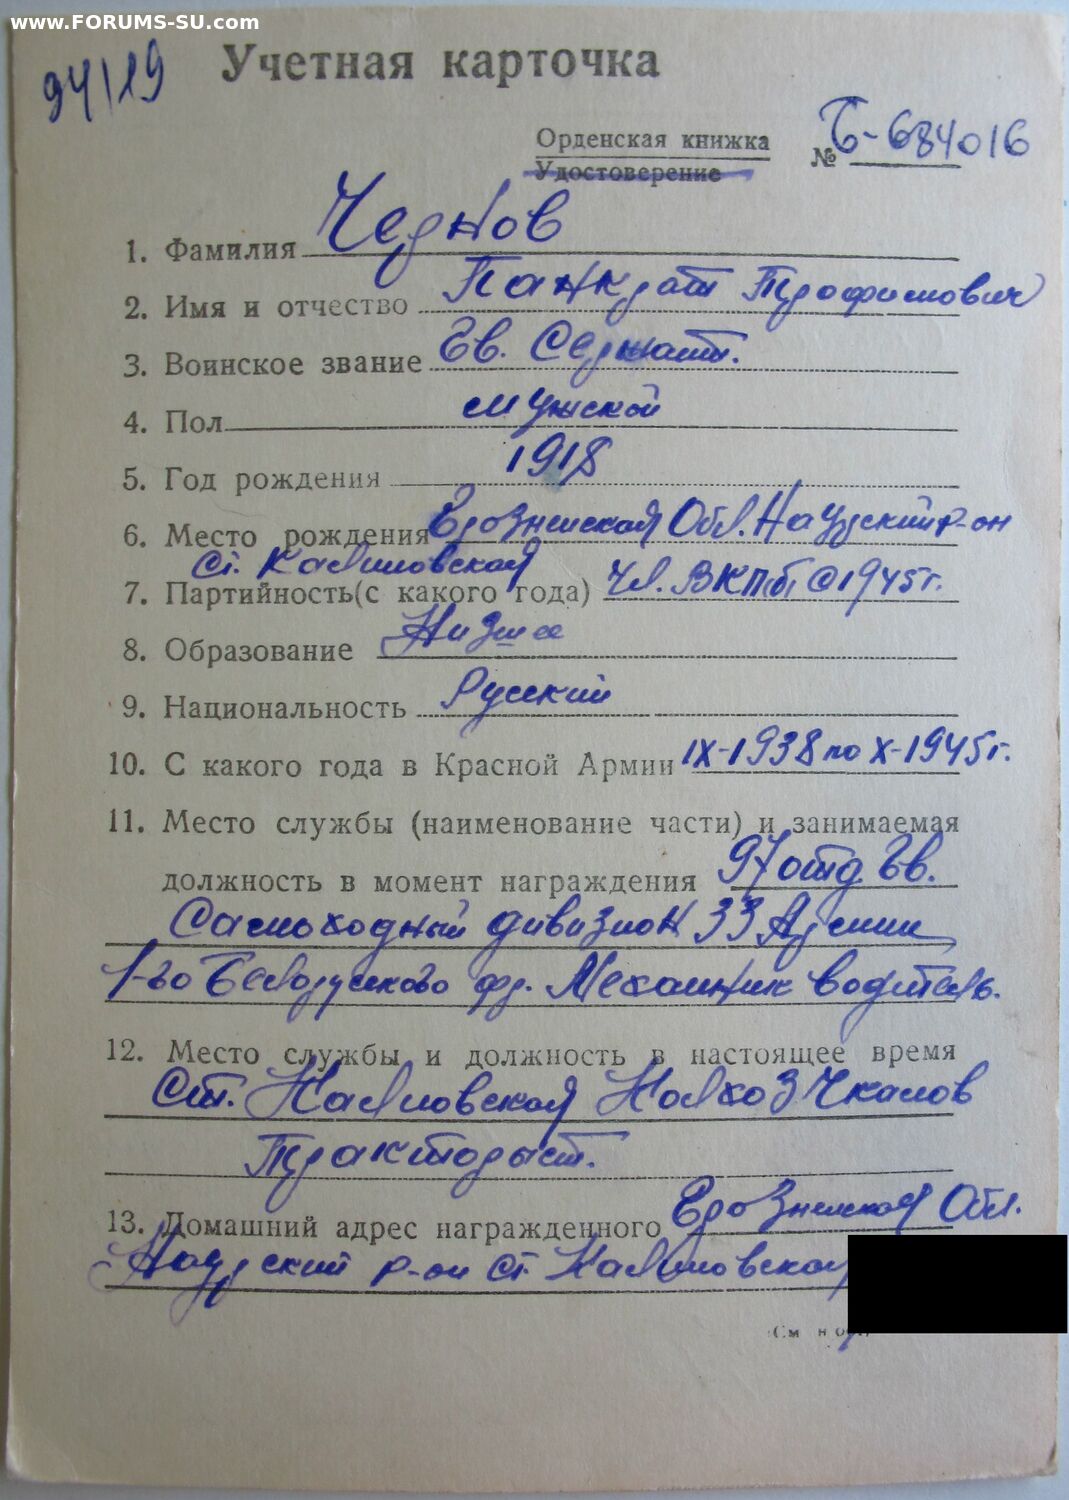 www.FORUMS-SU.com
94/19
Учетная карточка
Орденская книжка
Удостоверение
№ Б-684016
1. Фамилия Чернов
2. Имя и отчество Панкрат Трофимович
3. Воинское звание Гв. Сержант.
4. Пол мужской
5. Год рождения 1918
6. Место рождения Грозненская Обл. Наурский р-он
ст. Калиновская
7. Партийность (с какого года) Чл. ВКП(б) с 1945 г.
8. Образование Низшее
9. Национальность Русский
10. С какого года в Красной Армии IX-1938 по X-1945 г.
11. Место службы (наименование части) и занимаемая
должность в момент награждения 97 отд. Гв.
Самоходный дивизион 33 Армии
1-го Белорусского фр. Механик водитель.
12. Место службы и должность в настоящее время
Ст. Калиновская Колхоз Чкалов
Тракторист.
13. Домашний адрес награжденного Грозненская Обл.
Наурский р-он ст. Калиновская
(См